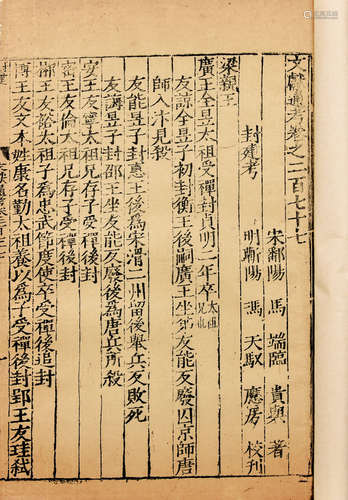 文獻通考卷之二百七十七
宋鄱陽馬端臨貴與著
明蘄陽馮天馭應房校刊
封建考
梁親王
廣王全昱太祖受禪封貞明二年卒太祖兄也
友諒全昱子初封衡王後嗣廣王坐弟友能反廢囚京師唐
師入汴見殺
友能全昱子封惠王後為宋滑二州留後舉兵反敗死
友誨全昱子封邵王坐友能反廢後為唐兵所殺
安王友寧太祖兄存子受禪後封
密王友倫太祖兄存子受禪後封
郴王友裕太祖子為忠武節度使卒受禪後追封
博王友文本姓康名勤太祖養以為子受禪後封郢王友珪弒